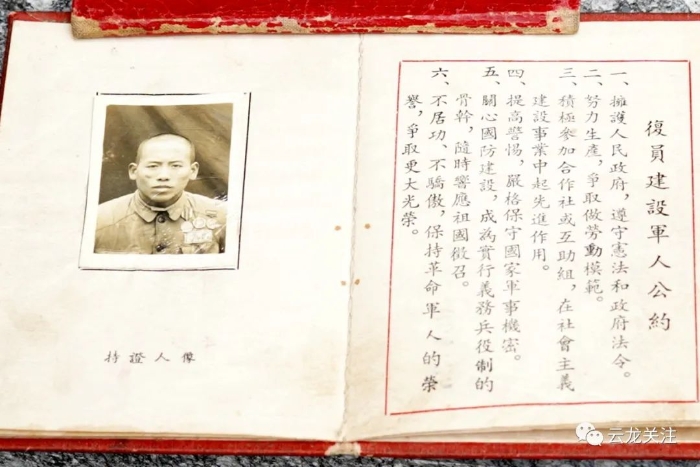 復員建設軍人公約
一、擁護人民政府，遵守憲法和政府法令。
二、努力生產，爭取做勞動模範。
三、積極參加合作社或互助組，在社會主義
建設事業中起先進作用。
四、提高警惕，嚴格保守國家軍事機密。
五、關心國防建設，成為實行義務兵役制的
骨幹，隨時響應祖國徵召。
六、不居功、不驕傲，保持革命軍人的榮
譽，爭取更大光榮。
持證人像
云龙关注